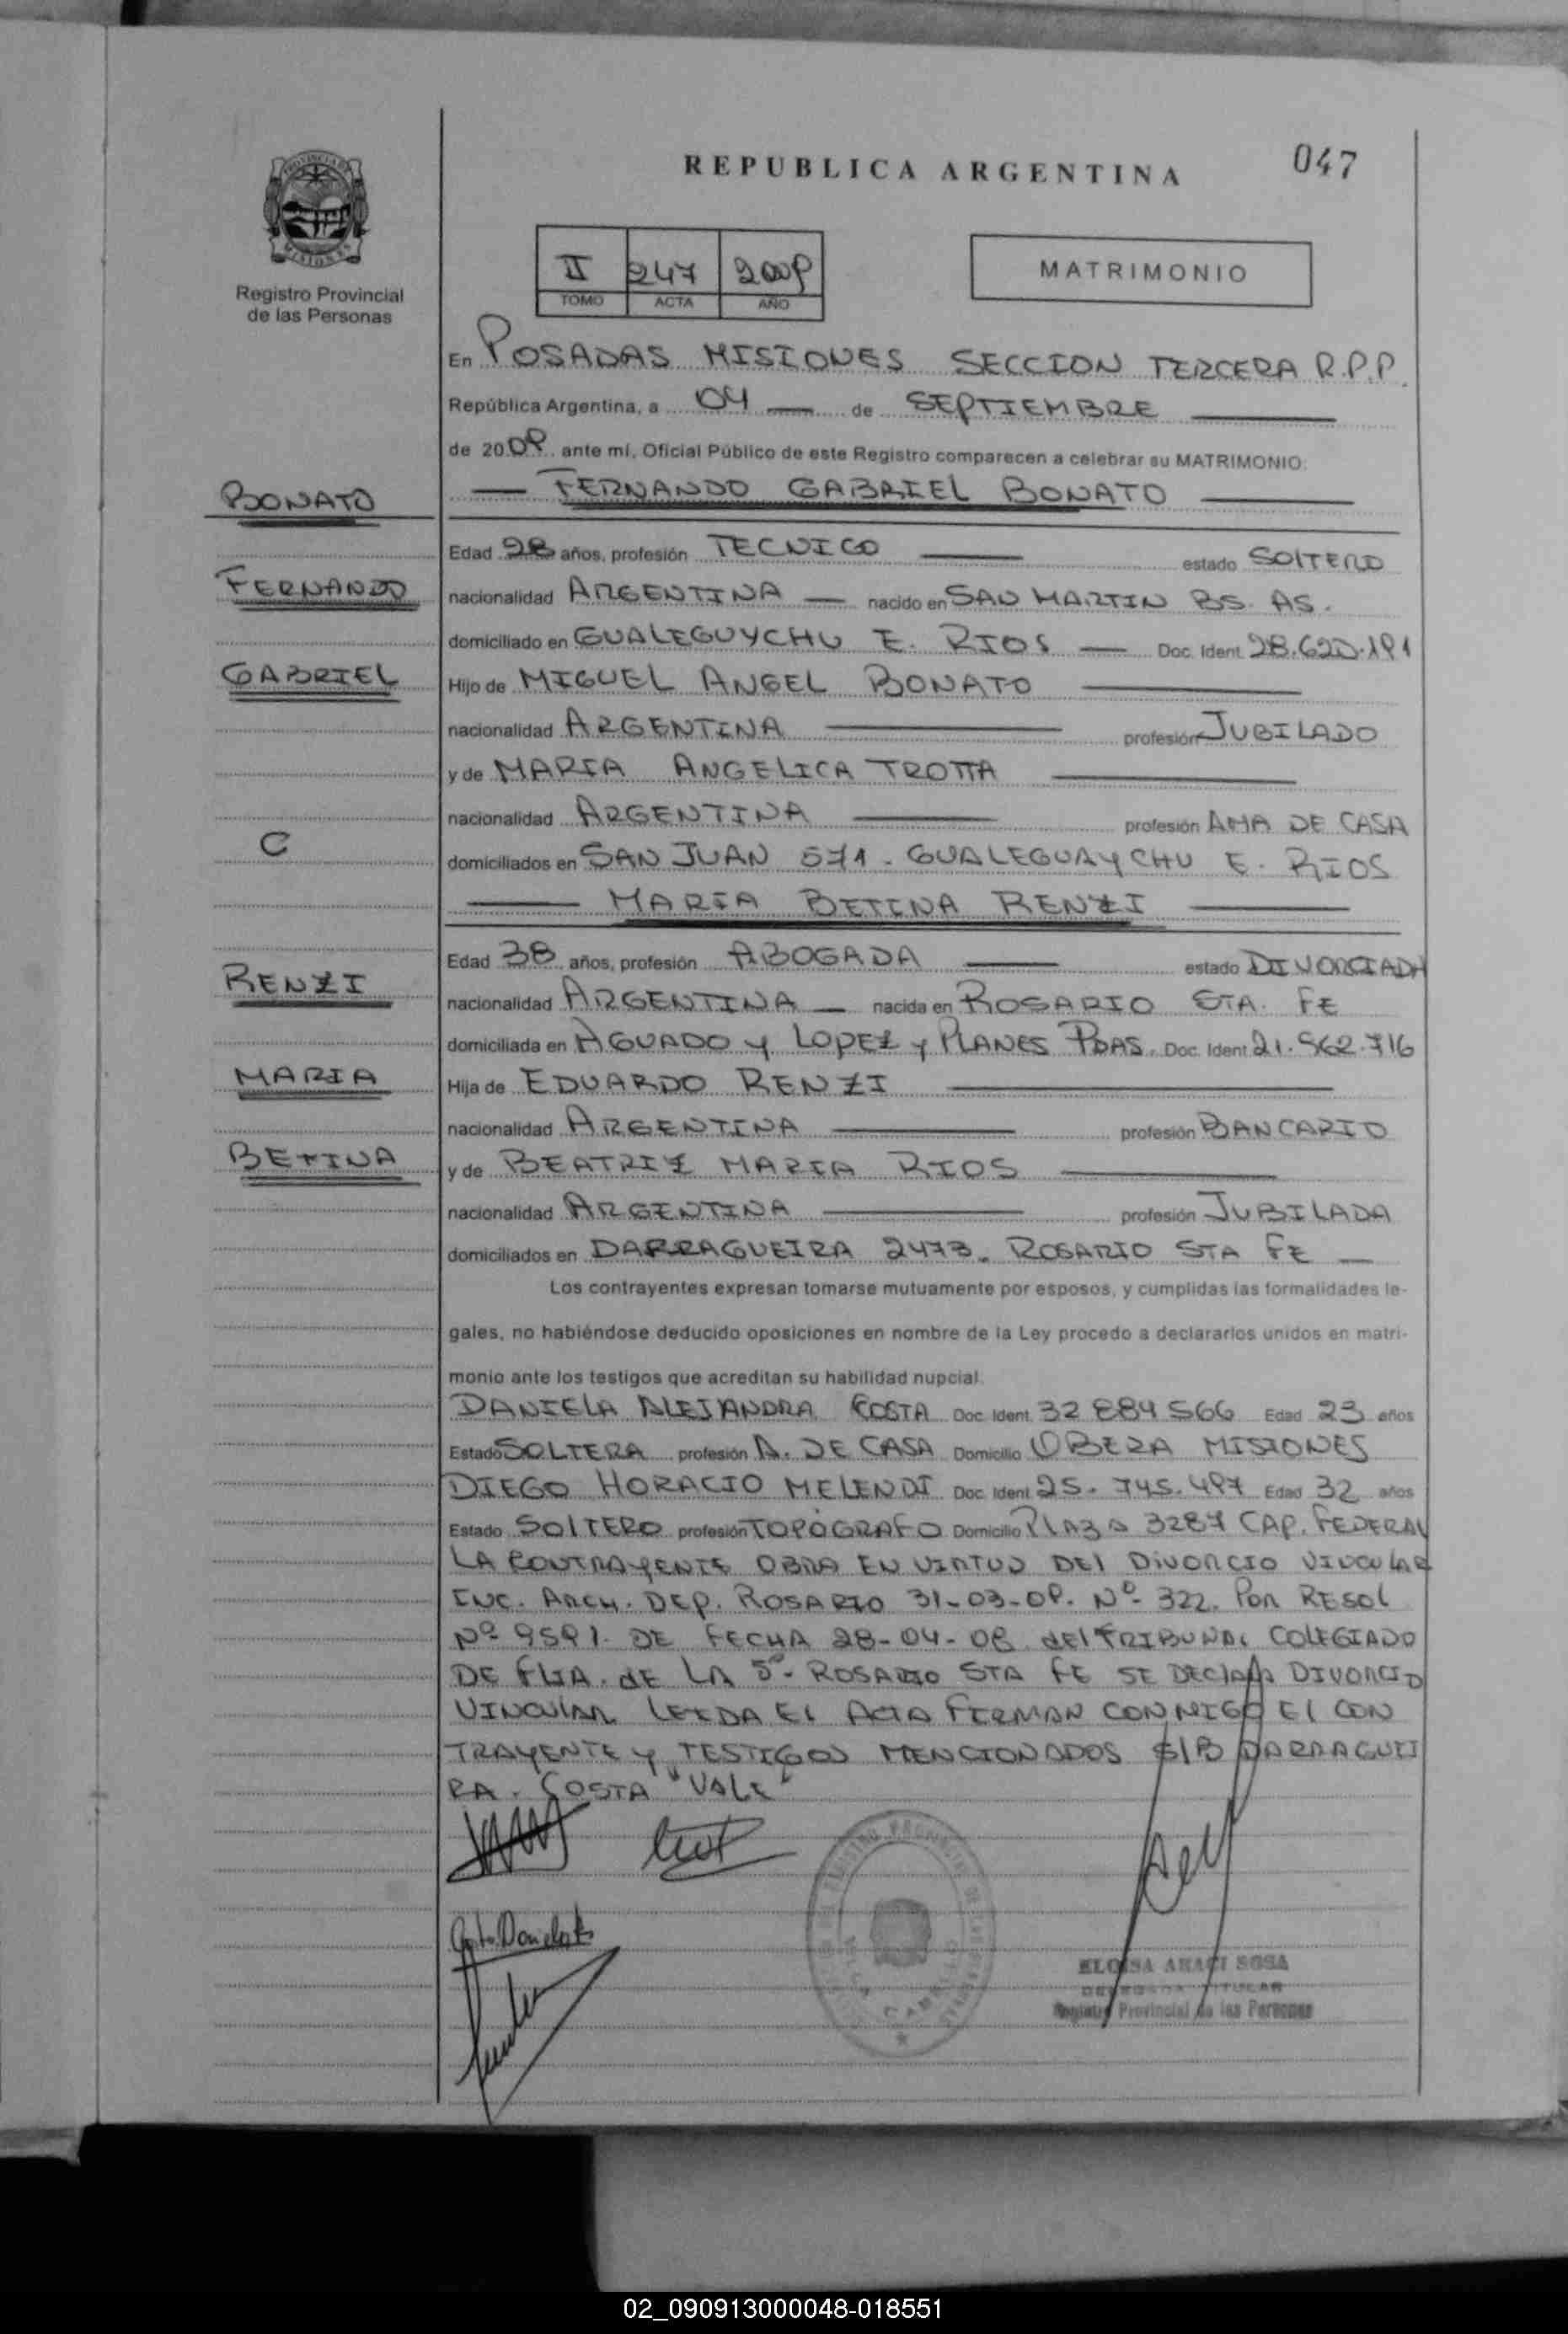 REPUBLICA ARGENTINA
047
Registro Provincial
de las Personas
II 247 2009
TOMO ACTA AÑO
MATRIMONIO
En POSADAS MISIONES SECCION TERCERA R.P.P.
República Argentina, a 04 de SEPTIEMBRE
de 2009 ante mí, Oficial Público de este Registro comparecen a celebrar su MATRIMONIO:
BONATO
FERNANDO GABRIEL BONATO
Edad 28 años, profesión TECNICO estado SOLTERO
FERNANDO
nacionalidad ARGENTINA nacido en SAN MARTIN BS. AS.
domiciliado en GUALEGUYCHU E. RIOS Doc. Ident. 28.620.191
GABRIEL
Hijo de MIGUEL ANGEL BONATO
nacionalidad ARGENTINA profesión JUBILADO
y de MARIA ANGELICA TROTTA
nacionalidad ARGENTINA profesión AMA DE CASA
C
domiciliados en SAN JUAN 571 - GUALEGUAYCHU E. RIOS
MARIA BETINA RENZI
Edad 38 años, profesión ABOGADA estado DIVORCIADA
RENZI
nacionalidad ARGENTINA nacida en ROSARIO STA. FE
domiciliada en AGUADO Y LOPEZ Y PLANES PDAS. Doc. Ident. 21.962.716
MARIA
Hija de EDUARDO RENZI
nacionalidad ARGENTINA profesión BANCARIO
BETINA
y de BEATRIZ MARIA RIOS
nacionalidad ARGENTINA profesión JUBILADA
domiciliados en DARRAGUEIRA 2473. ROSARIO STA FE
Los contrayentes expresan tomarse mutuamente por esposos, y cumplidas las formalidades le-
gales, no habiéndose deducido oposiciones en nombre de la Ley procedo a declararlos unidos en matri-
monio ante los testigos que acreditan su habilidad nupcial.
DANIELA ALEJANDRA COSTA Doc. Ident. 32 884 566 Edad 23 años
Estado SOLTERA profesión A. DE CASA Domicilio OBERA MISIONES
DIEGO HORACIO MELENDI Doc. Ident. 25.745.497 Edad 32 años
Estado SOLTERO profesión TOPOGRAFO Domicilio PLAZA 3287 CAP. FEDERAL
LA CONTRAYENTE OBRA EN VIRTUD DEL DIVORCIO VINCULAR
INC. ARCH. DEP. ROSARIO 31-03-09. Nº 322. POR RESOL
Nº 9591. DE FECHA 28-04-08 del TRIBUNAL COLEGIADO
DE FLIA. de LA 5º- ROSARIO STA FE SE DECLARA DIVORCIO
VINCULAR LEIDA EL ACTA FIRMAN CONMIGO EL CON
TRAYENTE Y TESTIGOS MENCIONADOS S/B DARRAGUEI
RA. COSTA "VALE"
ELOISA ARACI SOSA
DELEGADA TITULAR
Registro Provincial de las Personas
02_090913000048-018551